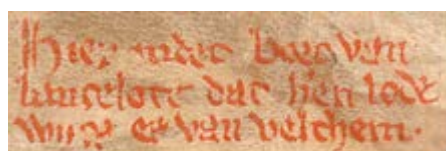 Hier indet boec van
lancelote dat heren lode
wijx es van velthem.